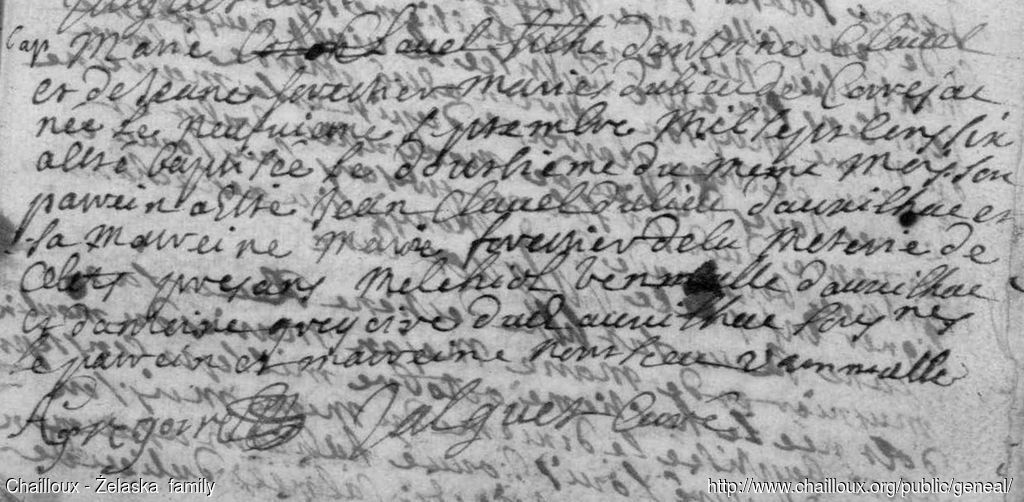 Marie Clavel filhe d'antoine Clavel
et de Jeane forestier mariés du lieu de
née le neufvieme septembre mil sept cens six
a esté baptisée le dousieme du meme mois son
parrein a esté Jean Clavel du lieu d'aurilhac et
sa marreine Marie forestier de la meterie de
presans Melchior d'aurilhac
et d'antoine gregoire dud aurilhac soussignes
le parrein et marreine nont sceu
A gregoire Curé
Chailloux - Želaska family
http://www.chailloux.org/public/geneal/